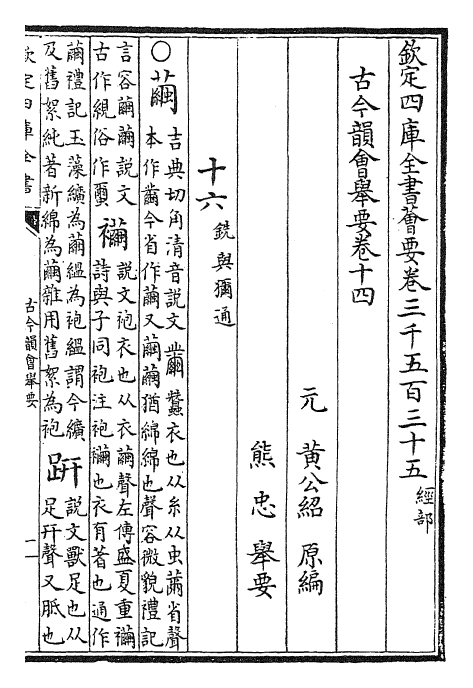 欽定四庫全書薈要卷三千五百三十五 經部
古今韻會舉要卷十四
元 黃公紹 原編
熊忠 舉要
十六 銑與獮通
○繭 吉典切角清音說文繭蠶衣也从糸从虫黹省聲
本作繭今省作繭又繭繭猶綿綿也聲容微貌禮記
言容繭繭說文
古作絸俗作蠒 襺 說文袍衣也从衣繭聲左傳盛夏重襺
詩與子同袍注袍襺也衣有著也通作
繭禮記玉藻纊為繭縕為袍縕謂今纊
及舊絮純著新綿為繭雜用舊絮為袍 趼 說文獸足也从
足幵聲又胝也
欽定四庫全書
古今韻會舉要
一